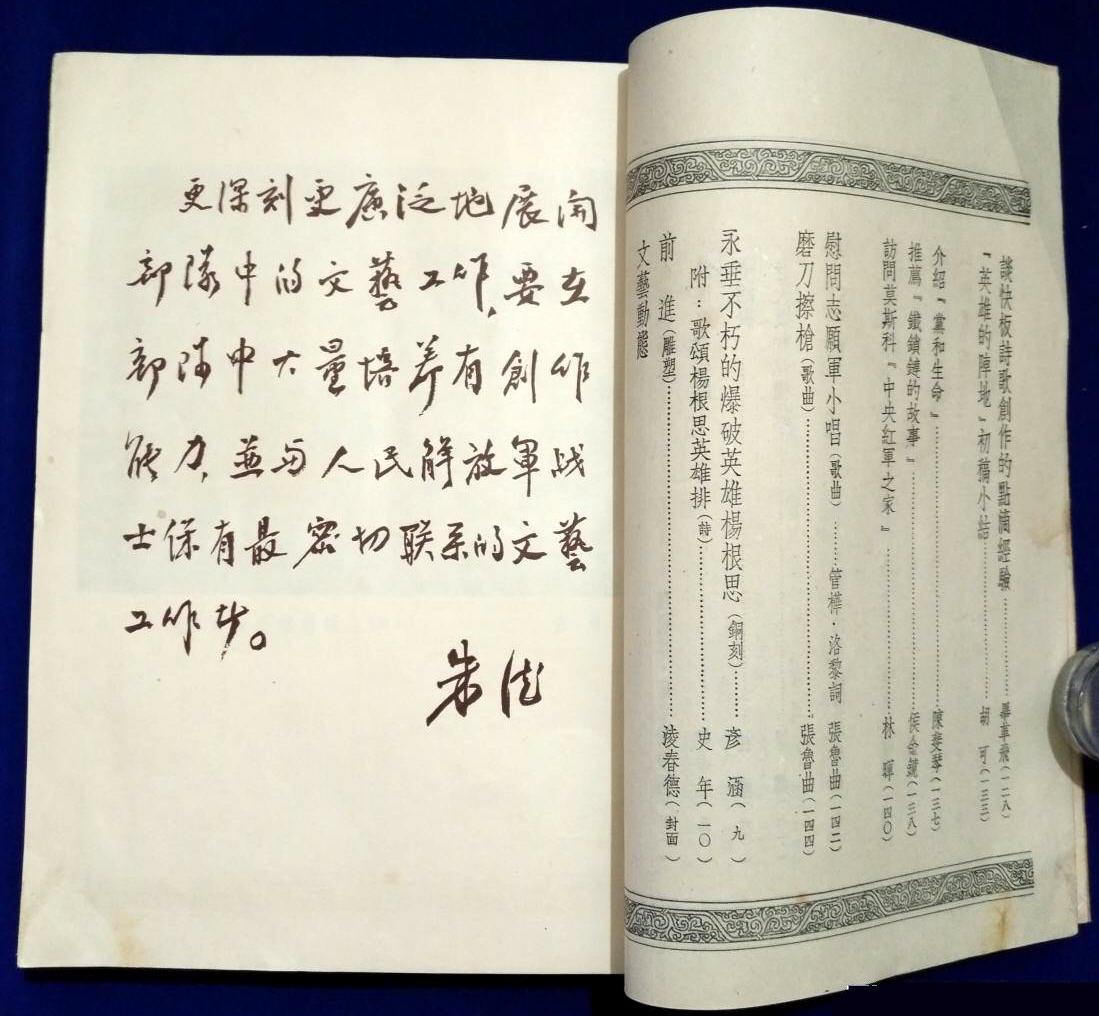 更深刻更廣泛地展開
部隊中的文藝工作，要在
部隊中大量培养有創作
能力，並与人民解放軍战
士保有最密切联系的文藝
工作者。
朱德
談快板詩歌創作的點滴經驗……畢革飛(一二八)
『英雄的陣地』初稿小結……胡 可(一三三)
介紹『黨和生命』……陳斐琴(一三七)
推薦『鐵鎖鏈的故事』……侯金鏡(一三八)
訪問莫斯科『中央紅軍之家』……林 暉(一四〇)
慰問志願軍小唱(歌曲)……管樺·洛黎詞 張魯曲(一四二)
磨刀擦槍(歌曲)……張魯曲(一四四)
永垂不朽的爆破英雄楊根思(銅刻)……彥 涵(九)
附：歌頌楊根思英雄排(詩)……史 年(一〇)
前 進(雕塑)……淩春德(封面)
文藝動態